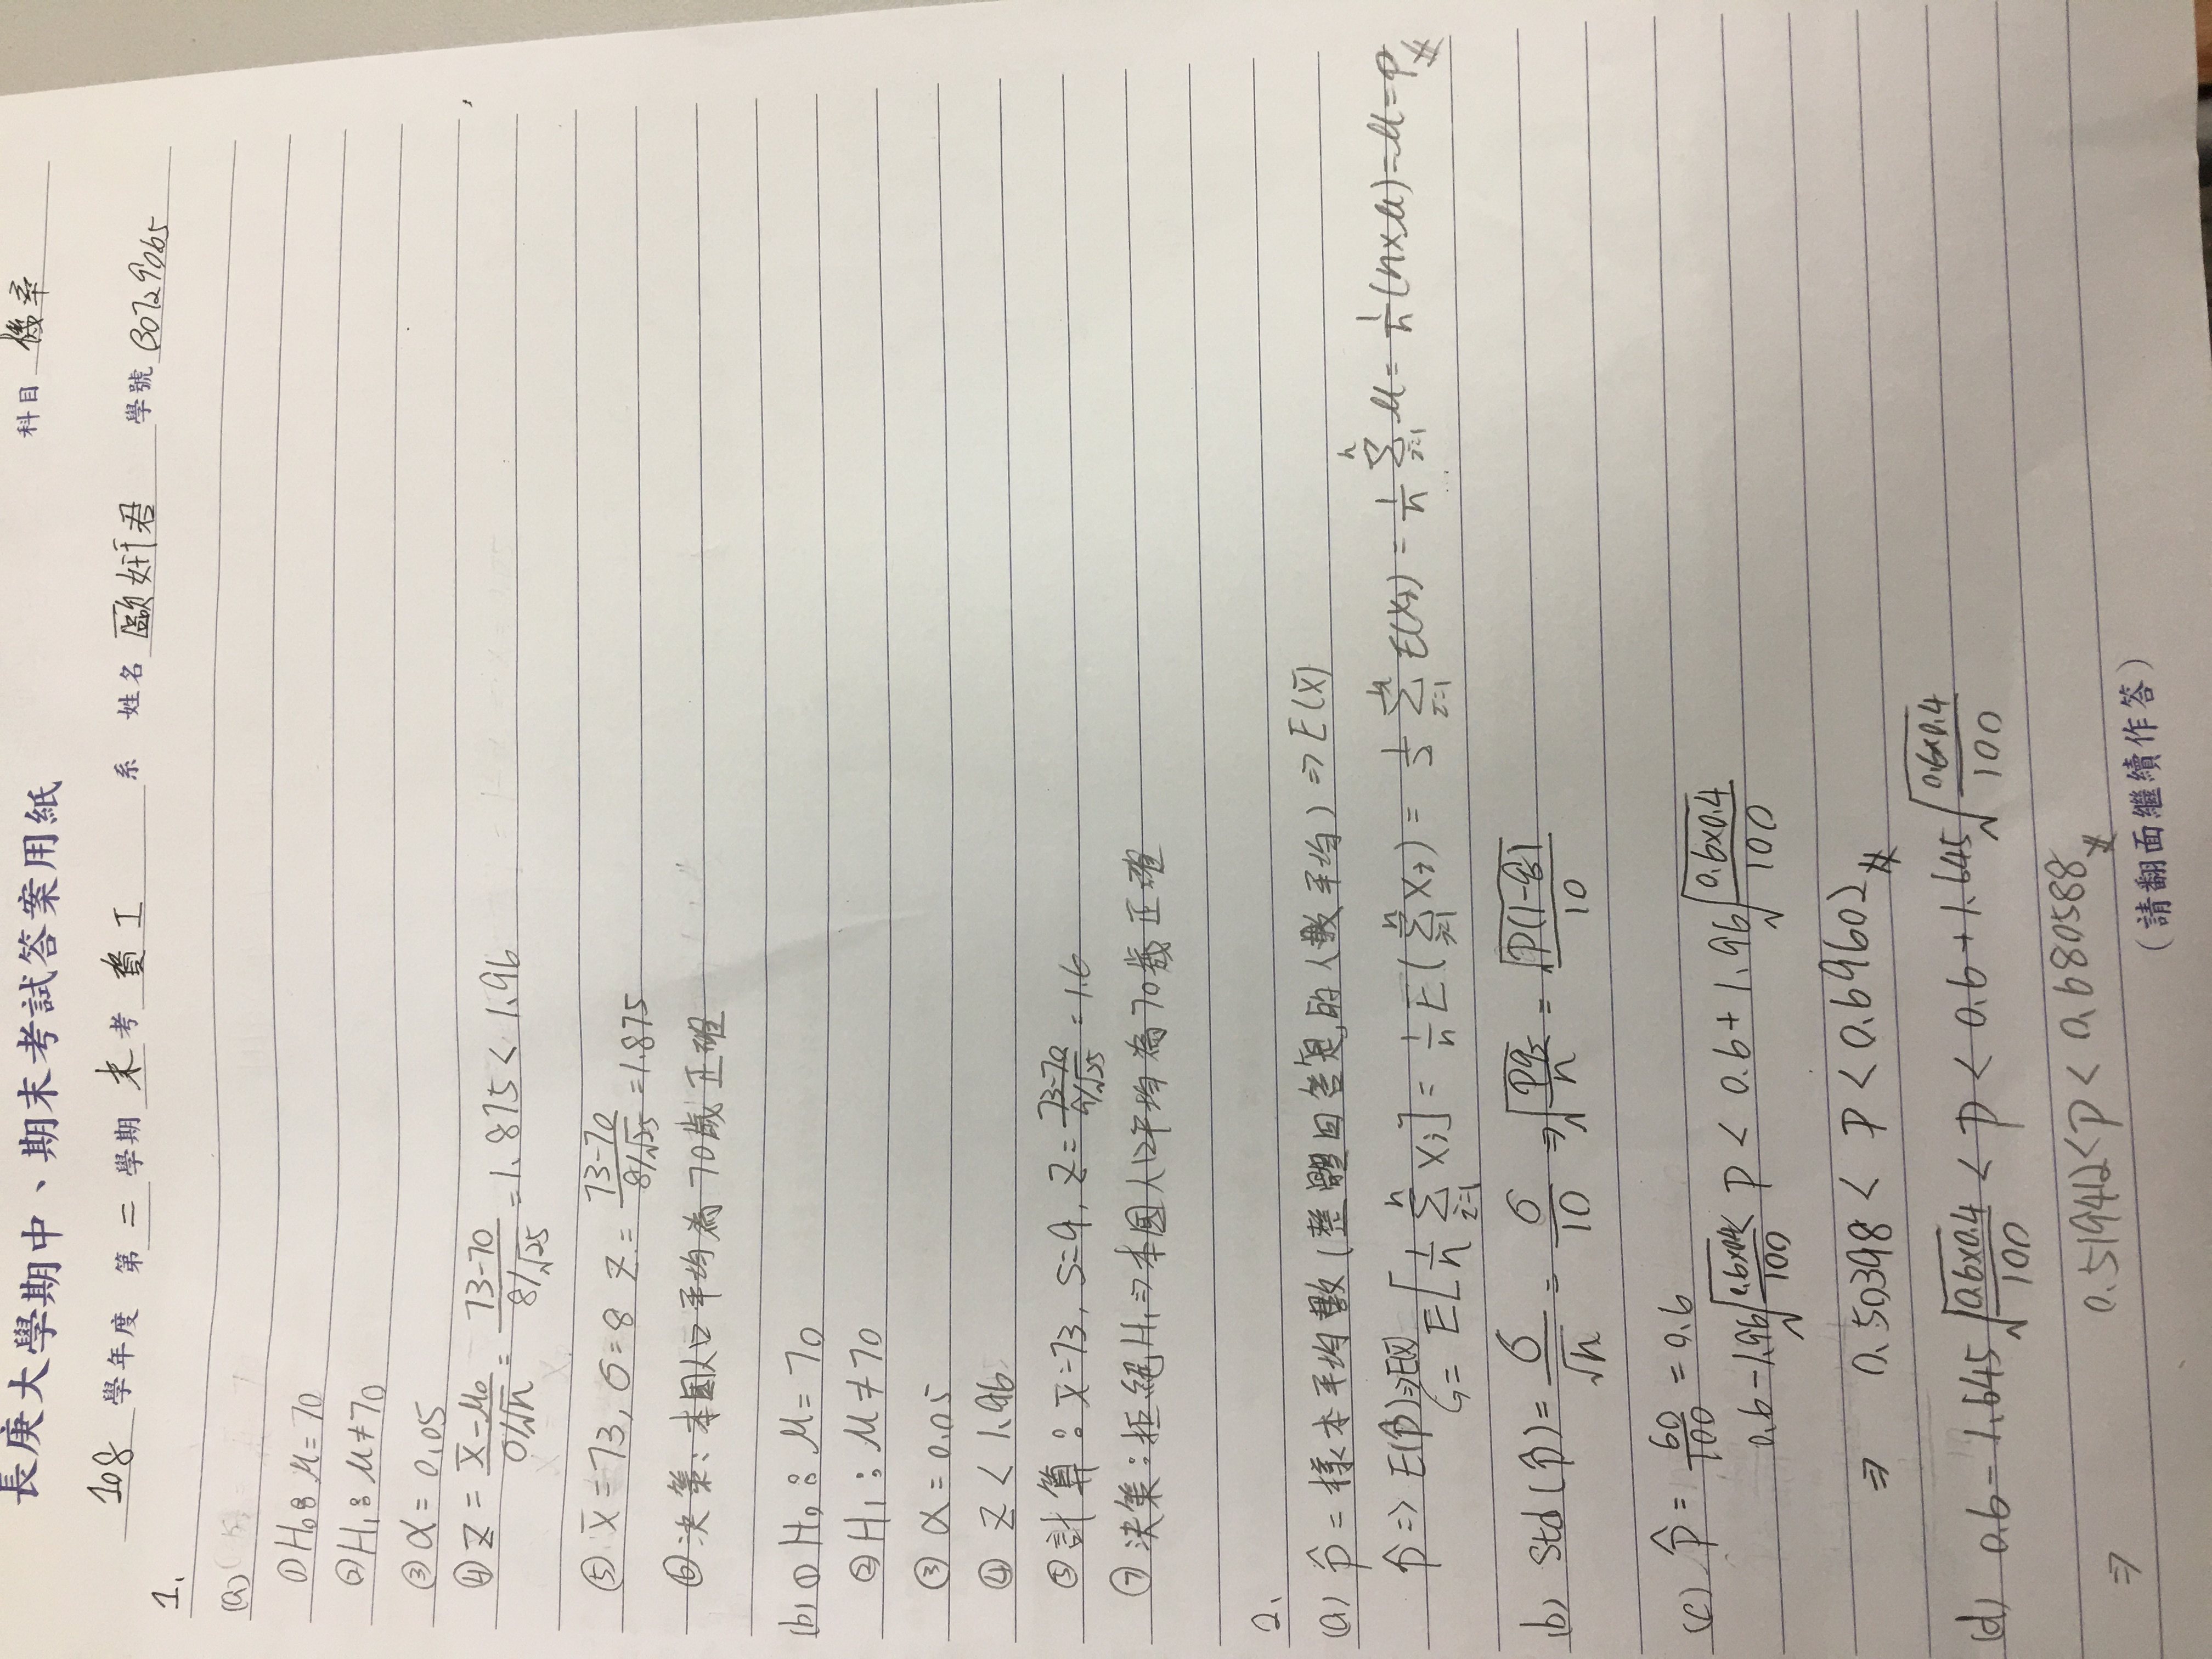 長庚大學期中、期末考試答案用紙 科目 機率
108 學年度 第 二 學期 末 考 資工 系 姓名 歐妍君 學號 B0729065
1.
(a)
① H₀: μ = 70
② H₁: μ ≠ 70
③ α = 0.05
④ Z = (x̄-μ₀)/(σ/√n) = (73-70)/(8/√25) = 1.875 < 1.96
⑤ x̄ = 73, σ = 8 Z = (73-70)/(8/√25) = 1.875
⑥ 決策: 本國人口平均為 70歲 正確
(b) ① H₀: μ = 70
② H₁: μ ≠ 70
③ α = 0.05
④ Z < 1.96
⑤ 計算: x̄ = 73, s = 9, Z = (73-70)/(9/√25) = 1.6
⑦ 決策: 拒絕 H₁ ⇒ 本國人口平均為 70歲 正確
2.
(a) p̂ = 樣本平均數 (整體回答是的人數平均) ⇒ E(x̄)
p̂ ⇒ E(p̂) ⇒ E(x̄)
↳ = E[1/n Σ_{i=1}^{n} Xi] = 1/n E(Σ_{i=1}^{n} Xi) = 1/2 Σ_{i=1}^{n} E(Xi) = 1/n Σ_{i=1}^{n} μ = 1/n (n×μ) = μ = p #
(b) Std(p̂) = σ/√n = σ/10 ⇒ √(pq/n) = √(p(1-q))/10
(c) p̂ = 60/100 = 0.6
0.6 - 1.96√(0.6×0.4/100) < P < 0.6 + 1.96√(0.6×0.4/100)
⇒ 0.50398 < P < 0.69602 #
(d) 0.6 - 1.645√(0.6×0.4/100) < P < 0.6 + 1.645√(0.6×0.4/100)
⇒ 0.519412 < P < 0.680588 #
(請翻面繼續作答)